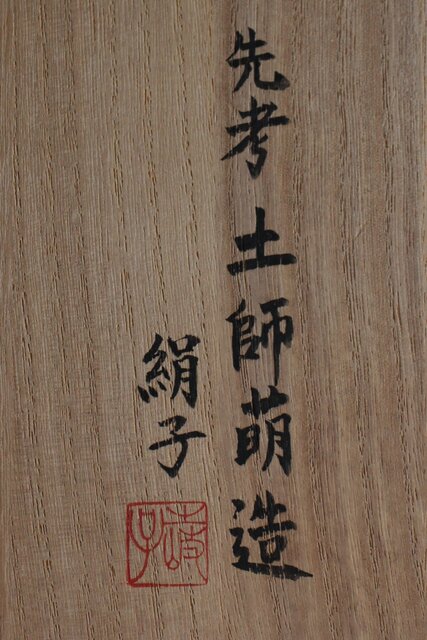 先考土師萌造
絹子